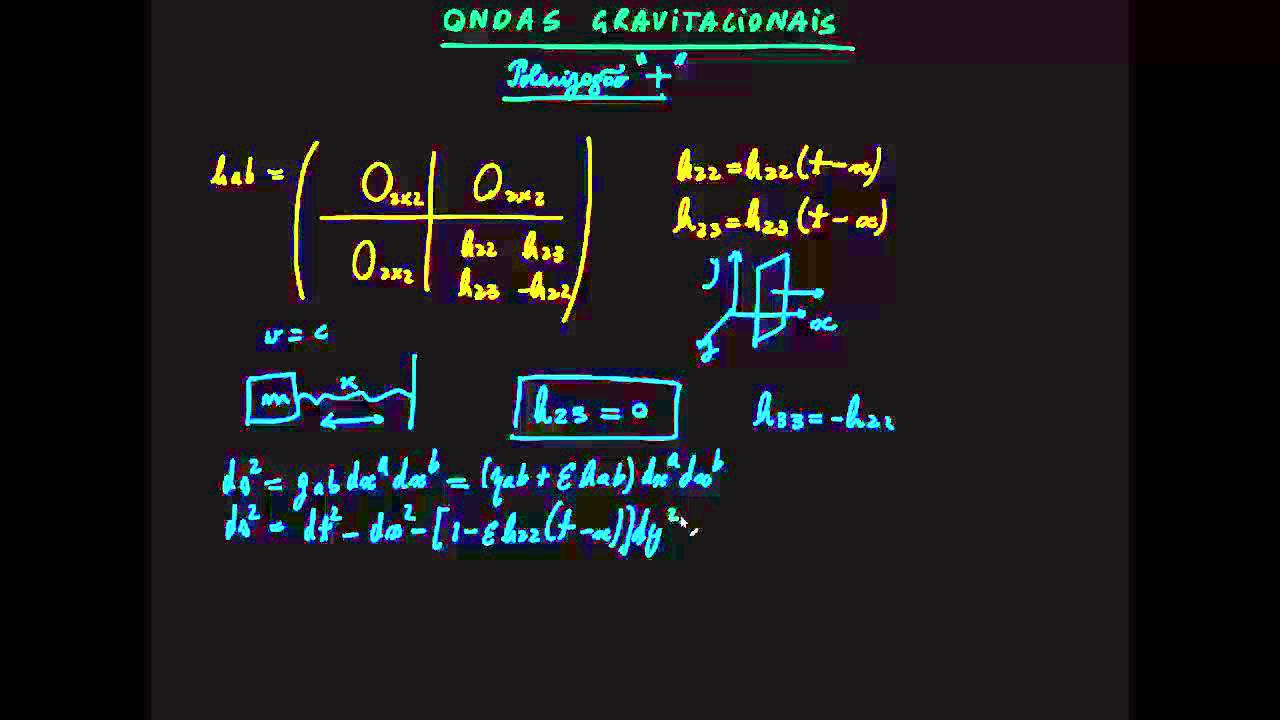 ONDAS GRAVITACIONAIS
Polarização "+"
hab = ( O2x2 | O2x2
O2x2 | h22 h23
h23 -h22 )
h22 = h22 (t-x)
h23 = h23 (t-x)
y
x
z
v = c
m k
h23 = 0
h33 = -h22
ds² = gab dxᵃ dxᵇ = (ηab + εhab) dxᵃ dxᵇ
ds² = dt² - dx² - [1 - εh22 (t-x)] dy² -